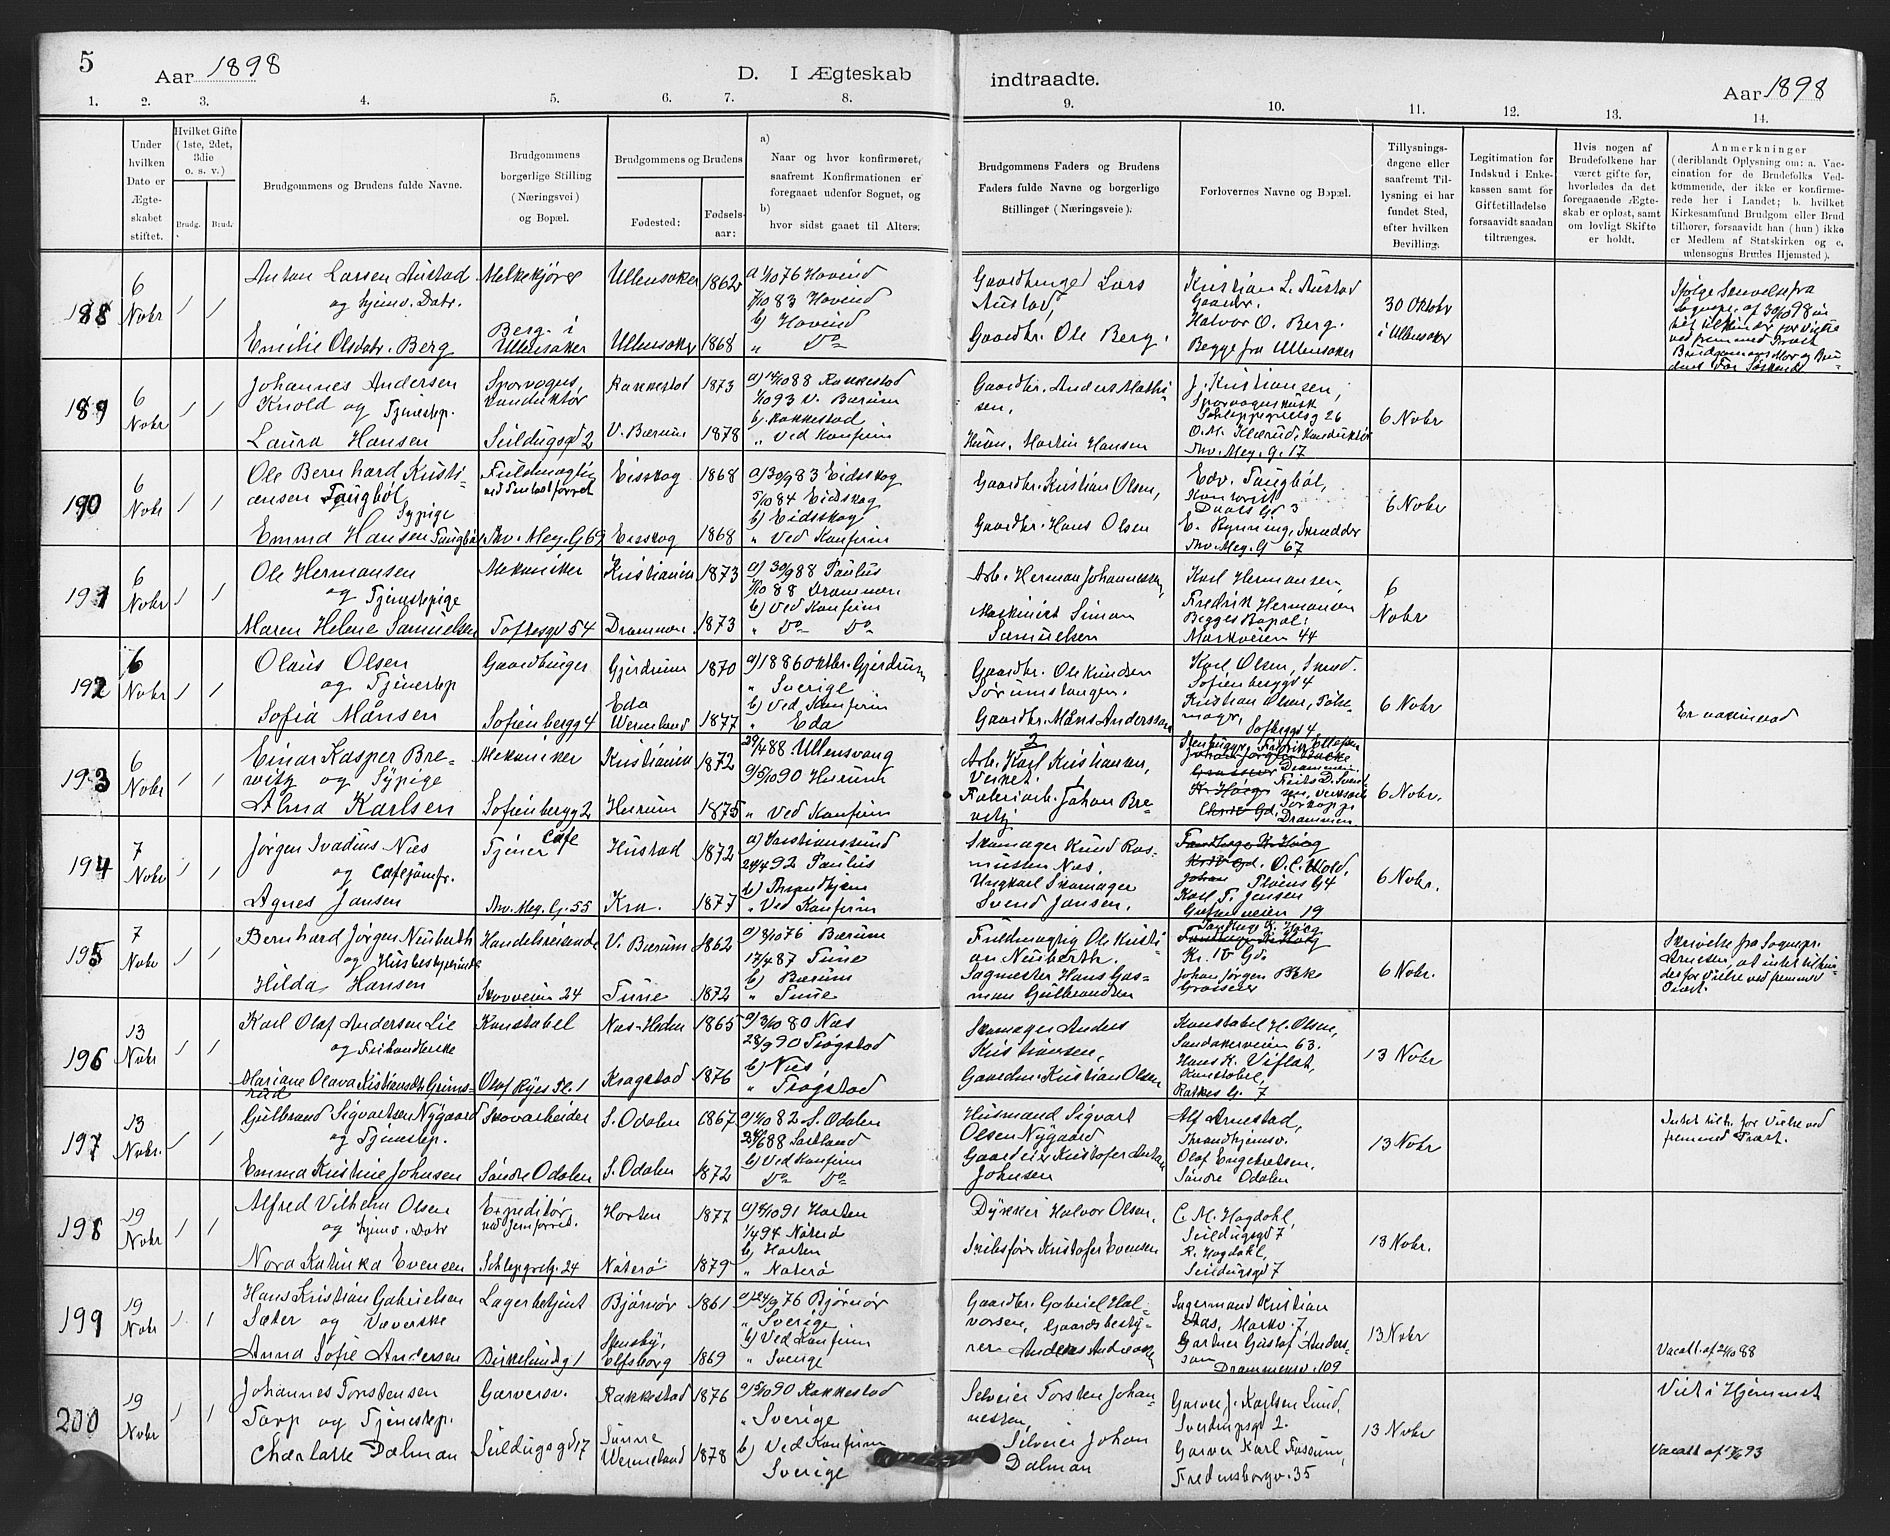 5
Aar 1898
D. I Ægteskab
indtraadte.
Aar 1898
1. 2. 3. 4. 5. 6. 7. 8. 9. 10. 11. 12. 13. 14.
Under hvilken Dato er Ægteskabet stiftet.
Hvilket Gifte (1ste, 2det, 3die o. s. v.)
Brudg. Brud.
Brudgommens og Brudens fulde Navne.
Brudgommens borgerlige Stilling (Næringsvei) og Bopæl.
Brudgommens og Brudens
Fødested: Fødselsaar:
a) Naar og hvor konfirmeret, saafremt Konfirmationen er foregaaet udenfor Sognet, og
b) hvor sidst gaaet til Alters.
Brudgommens Faders og Brudens Faders fulde Navne og borgerlige Stillinger (Næringsveie).
Forlovernes Navne og Bopæl.
Tillysningsdagene eller saafremt Tillysning ei har fundet Sted, efter hvilken Bevilling.
Legitimation for Indskud i Enkekassen samt for Giftetilladelse forsaavidt saadan tiltrænges.
Hvis nogen af Brudefolkene har været gifte før, hvorledes da det foregaaende Ægteskab er opløst, samt om lovligt Skifte er holdt.
Anmerkninger (deriblandt Oplysning om: a. Vaccination for de Brudefolks Vedkommende, der ikke er konfirmerede her i Landet; b. hvilket Kirkesamfund Brudgom eller Brud tilhører, forsaavidt han (hun) ikke er Medlem af Statskirken og c. udensogns Brudes Hjemsted).
188
6 Nobr
1 1
Anton Larsen Austad
og hjmv. Datr.
Emilie Olsdatr. Berg
Melkekjører
Berg i Ullensaker
Ullensaker 1862
Ullensaker 1868
a 1/10 76 Hovind
7/10 83 Hovind
b) Hovind
" Do
Gaardbruger Lars Austad
Gaardbr. Ole Berg.
Kristian L. Austad
Gaardbr.
Halvor O. Berg.
Begge fra Ullensaker
30 Oktbr i Ullensaker
189
6 Nobr
1 1
Johannes Andersen
Knold og Tjenestep.
Laura Hansen
Sporvogns,
konduktør
Seildugsgd 2
Rakkestad 1873
V. Bærum 1878
a) 14/10 88 Rakkestad
1/10 93 V. Bærum
b) Rakkestad
" Ved Konfirm
Gaardbr. Anders Mathisen,
Husm. Martin Hansen
J. Kristiansen,
Sporvognskusk
Schleppegrellsg 26
O. M. Klærud, Konduktør
Thv. Mey. g. 17
6 Nobr
190
6 Nobr
1 1
Ole Bernhard Kristiansen
Taugbøl
Sypige
Emma Hansen Taugbøl
Fuldmægtig
Thv. Mey. G 69
Eidskog 1868
Eidskog 1868
a) 30/9 83 Eidskog
5/10 84 Eidskog
b) Eidskog
" Ved Konfirm
Gaardbr. Kristian Olsen,
Gaardbr. Hans Olsen
Edv. Taugbøl,
Kontorist
Daaes Gd 3
E. Rynning, Skrædder
Thv. Mey. G 67
6 Nobr
191
6 Nobr
1 1
Ole Hermansen
og Tjenestepige
Maren Helene Samuelsen
Mekaniker
Toftesgd 54
Kristiania 1873
Drammen 1873
a) 30/9 88 Paulus
7/10 88 Drammen
b) Ved Konfirm
" Do Do
Arb. Herman Johannessen,
Maskinist Simon
Samuelsen
Karl Hermansen
Fredrik Hermansen
Begges Bopæl:
Markveien 44
6 Nobr
192
6 Nobr
1 1
Olaus Olsen
og Tjenestep
Sofia Månsen
Gaardbruger
Sofienbergg 4
Gjerdrum 1870
Eda Wermland 1877
a) 1886 oktbr. Gjerdrum
" Sverige
b) Ved Konfirm
" Eda
Gaardbr. Ole Knudsen
Sørumslangen.
Gaardbr. Måns Andersson
Karl Olsen, Smed.
Sofienbergg 4
Kristian Olsen,
Sofbergg 4
6 Nobr
Er vaccinered
193
6 Nobr
1 1
Einar Kasper Brevitz
og Sypige
Alma Karlsen
Mekaniker
Sofienbergg 2
Kristiania 1872
Hurum 1875
29/4 88 Ullensvang
5/10 90 Hurum
" Ved Konfirm
2
Arb. Karl Kristiansen,
1
Fabrikarb. Johan Brevitz
Drammen
Drammen
6 Nobr.
194
7 Nobr
1 1
Jørgen Ivadius Næs
og Cafejomfr.
Agnes Jansen
Tjener Cafe
Thv. Mey. G. 55
Hustad 1872
Kra. 1877
a) Kristianssund
24/4 92 Paulus
b) Throndhjem
" Ved Konfirm
Skomager Knud Rasmussen Næs.
Ungkarl Skomager
Svend Jansen.
O. C. Wold,
Pløens G 4
Karl F. Jensen
Grefsenveien 19
6 Nobr.
195
7 Nobr
Bernhard Jørgen Neuberth
og Husbestyrerinde
Hilda Hansen
Handelsreisende
Skovveien 24
V. Bærum 1862
Tune 1872
a) 8/10 76 Bærum
17/4 87 Tune
b) Bærum
" Tune
Fuldmægtig Ole Kristian Neuberth.
Sagmester Hans Gasman Gulbrandsen
Kr. IV Gd.
Johan Jørgen Bakke
Grosserer
6 Nobr.
196
13 Nobr
1 1
Karl Olaf Andersen Lie
og Frihandlerske
Mariane Olava Kristiansdtr Grimsrud
Konstabel
Olaf Ryes Pl. 1
Næs-Hedm 1865
Kragstad 1876
a) 3/10 80 Næs
28/9 90 Trøgstad
b) Næs,
" Trøgstad
Skomager Anders
Kristiansen,
Gaardm. Kristian Olsen
Konstabel H. Olsen,
Sandakerveien 63.
Hans K. Viflat,
Konstabel,
Ratkes G. 7
13 Nobr
197
13 Nobr.
1 1
Gulbrand Sigvartsen Nygaard
og Tjenestep.
Emma Kristine Johnsen
Skovarbeider
Søndre Odalen
S. Odalen 1867
S. Odalen 1872
a) 1/10 82 S. Odalen
24/6 88
b) Ved Konfirm
Do Do
Husmand Sigvart
Olsen Nygaard
Gaardeier Kristofer Anton
Johnsen
Alf Arnestad,
Throndhjemsv.
Olaf Engebretsen.
Søndre Odalen
13 Nobr
Intet tilh. for Vielse ved
fremmed Præst.
198
19 Nobr
1 1
Alfred Vilhelm Olsen
og hjmv. Datr
Nora Katinka Evensen
Expeditør
ved Jernforret.
Schleppgrelg. 24
Horten 1877
Nøterø 1879
a) 4/10 91 Horten
1/4 94 Nøterø
b) Horten
" Nøterø
Dykker Halvor Olsen.
Skibsfører Kristofer Evensen
C. M. Hogdahl,
Seildugsgd 7
R. Hogdahl,
Seildugsgd 7
13 Nobr.
199
19 Nobr
1 1
Hans Kristian Gabrielsen
Sæter og Væverske
Anna Sofie Andersen
Lagerbetjent
Birkelundg 1
Bjørnør 1861
Elfsborg 1869
a) 24/9 76 Bjørnør
" Sverige
b) Ved Konfirm
" Sverige
Gaardbr. Gabriel Halvorsen, Gaardsbestyrer Anders Andreasen
Lagermand Kristian
Aas, Markv. 7
Gartner Gustaf Andersson
Drammensv. 109
13 Nobr
Vacatt. af 2/10 88
200
19 Nobr
1 1
Johannes Torstensen
Torp og Tjenestep.
Charlotte Dalman
Garversv.
Seildugsgd 17
Rakkestad 1876
Sunne Wermeland 1878
a) 5/10 90 Rakkestad
" Sverige
b) Ved Konfirm
Sverige
Selveier Torsten Johannessen,
Selveier Johan
Dalman
Garver J. Karlsen Lund,
Sverdrupsgd 2.
Garver Karl Fossum,
Fredensborgv. 35
13 Nobr
Viet i Hjemmet